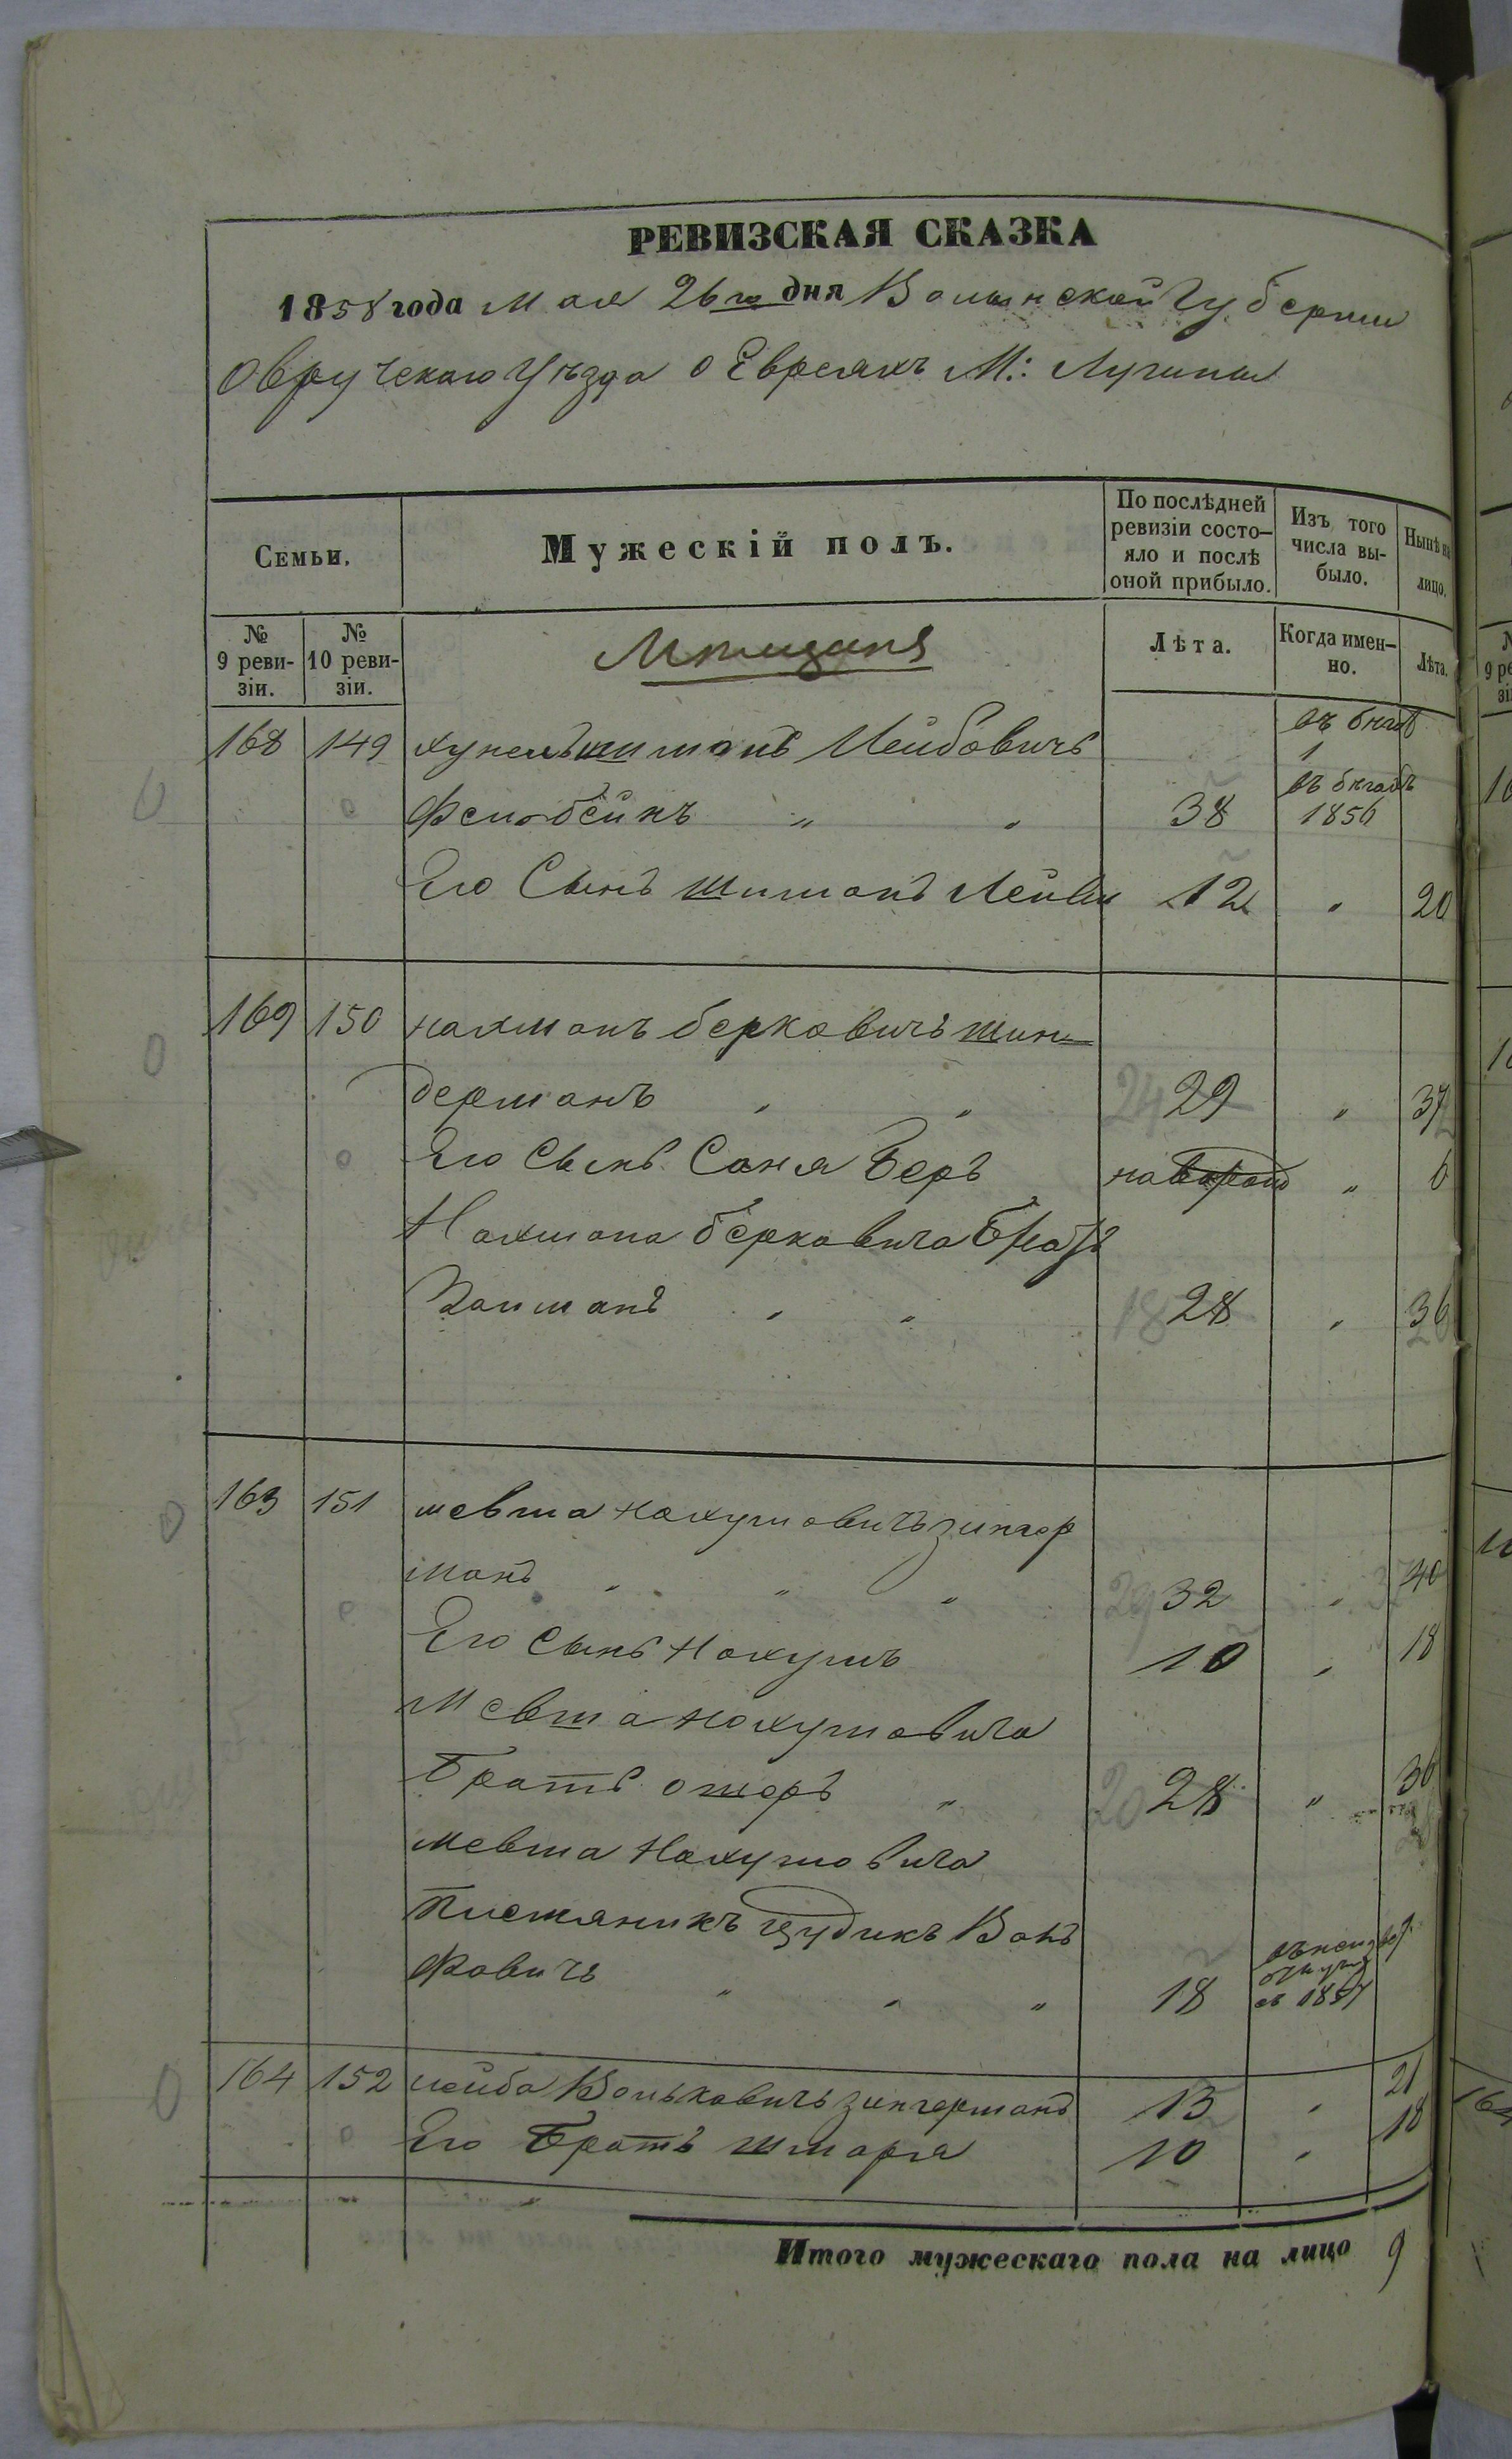 РЕВИЗСКАЯ СКАЗКА
1858 года Мая 26го дня Волынской Губернии
Овручскаго Уѣзда о Евреяхъ М: Лугины
Семьи.
Мужескій полъ.
По послѣдней ревизіи состо-
яло и послѣ
оной прибыло.
Изъ того
числа вы-
было.
Нынѣ на
лицо.
№
9 реви-
зіи.
№
10 реви-
зіи.
Мѣщане
Лѣта.
Когда имен-
но.
Лѣта.
168 149 Лейбовичъ
въ бѣгахъ
38 1856
Его Сынъ Шимонъ Лейви 12 " 20
169 150 Нахманъ Берковичъ Шин
дерманъ " " 24 29 " 37
Его Сынъ Саня Беръ " 6
Нахмана Берковича Братъ
Залманъ " " 18 28 " 36
163 151 Мевша Нахумовичъ Зингер
манъ " " " 29 32 " 40
Его Сынъ Нахумъ 10 " 18
Мевша Нахумовича
Братъ Ошеръ " 20 28 " 36
Мевша Нахумовича
Племяникъ Иудикъ Воль
фовичъ " " " 18 въ 1857
164 152 Лейба Вольковичъ Зингерманъ 13 " 21
Его Братъ Шмарья 10 " 18
Итого мужескаго пола на лицо 9